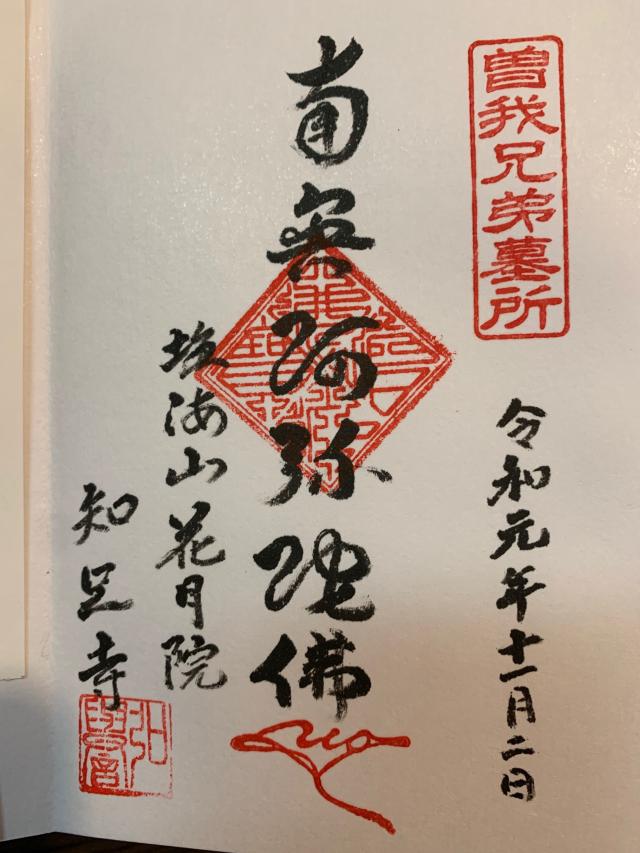 曽我兄弟墓所
令和元年十一月二日
南無阿弥陀佛
海山花月院
知足寺